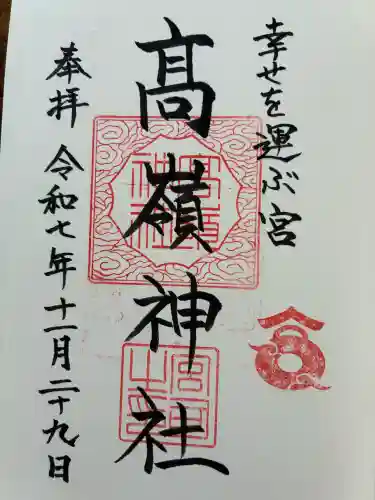 幸せを運ぶ宮
髙嶺神社
奉拝 令和七年十一月二十九日